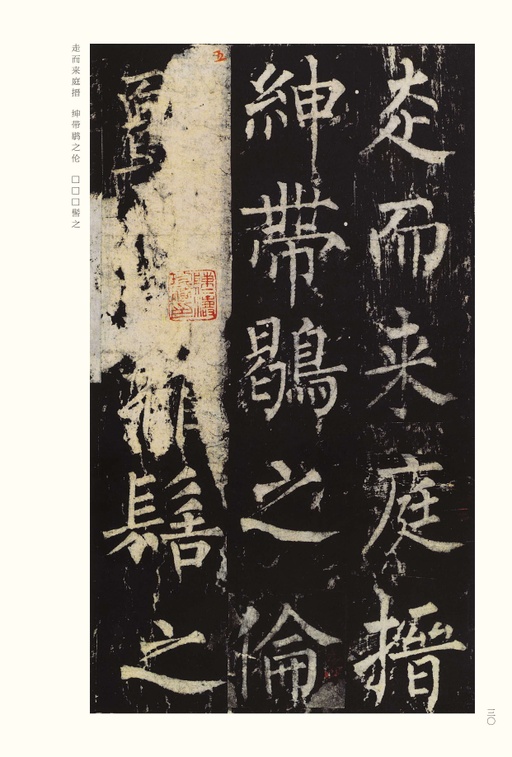 走而来庭搢
紳帶鶡之倫
髻之
走而来庭搢 绅带鹖之伦 □□□髻之
三〇